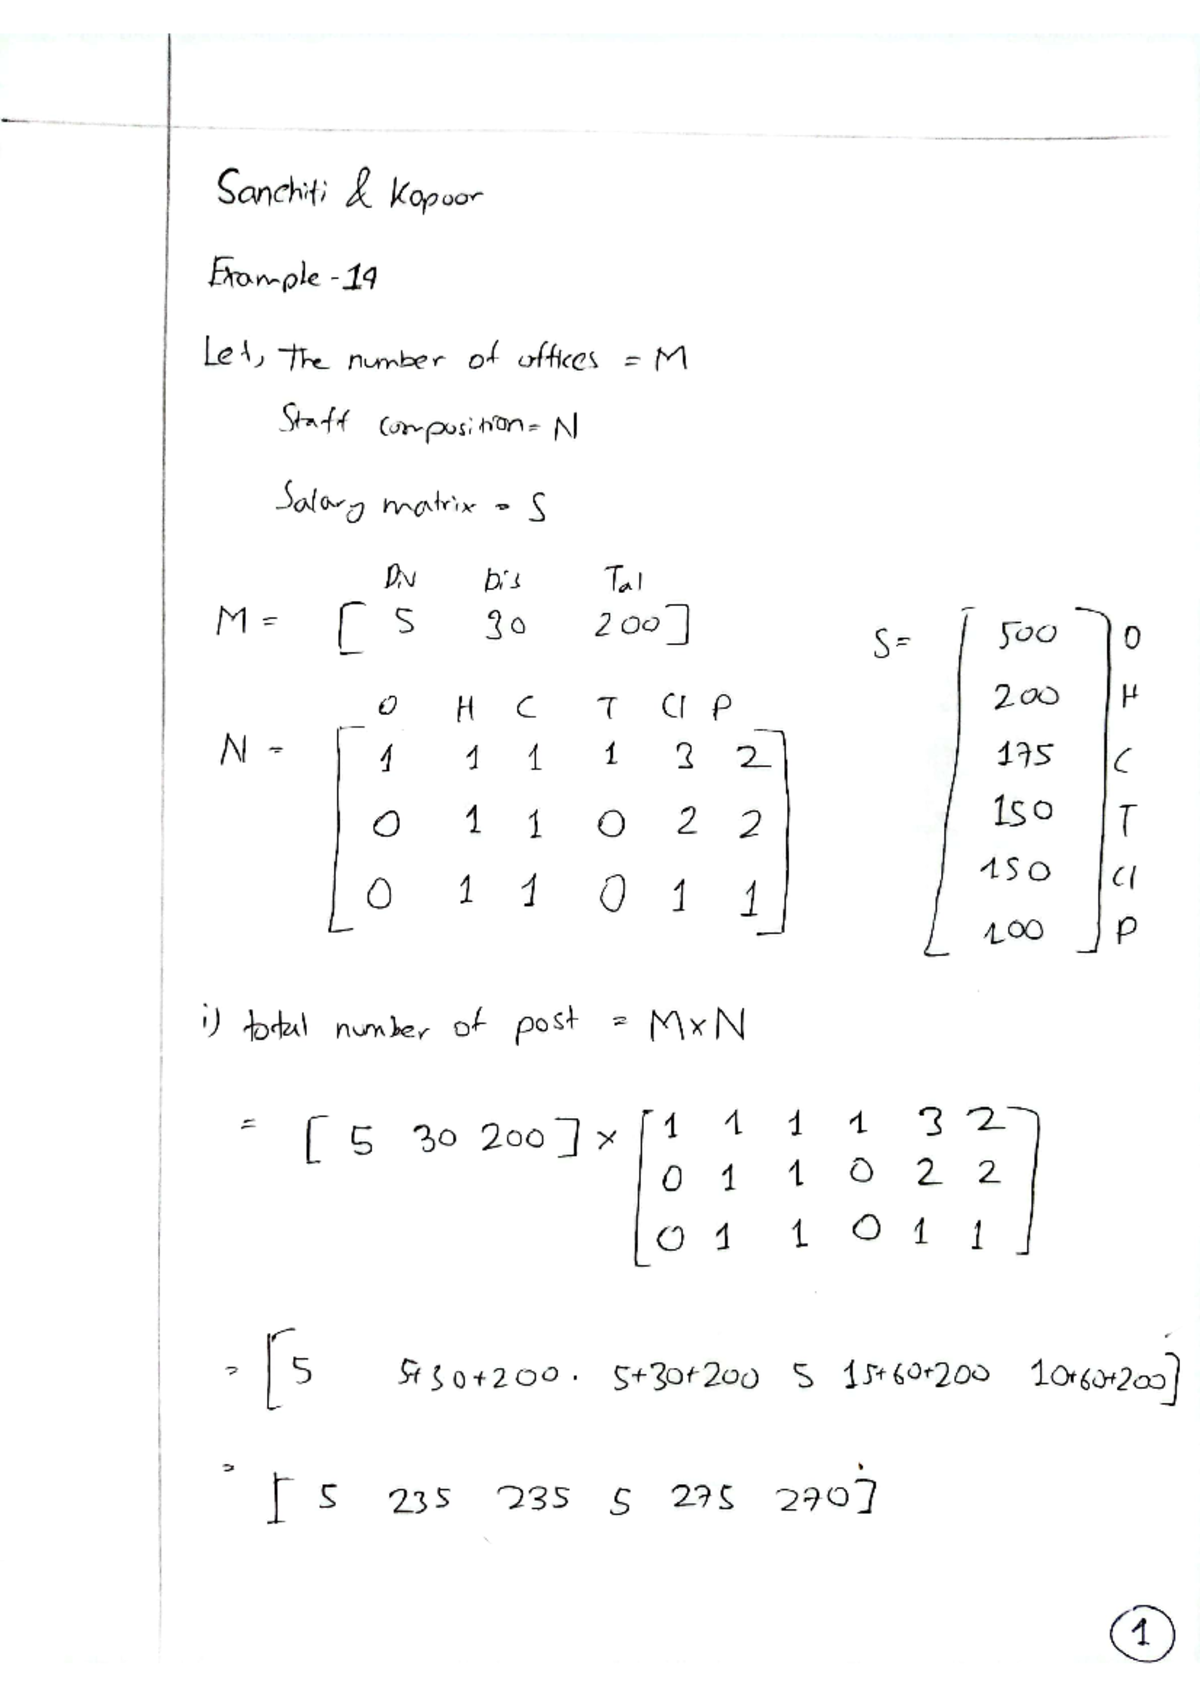 Sanchiti & Kapoor
Example-19
Let, the number of offices = M
Staff composition = N
Salary matrix = S
Div Dis Tal
M = [ 5 30 200 ]
O H C T Cl P
N = [ 1 1 1 1 3 2
0 1 1 0 2 2
0 1 1 0 1 1 ]
S = [ 500 ] O
200 H
175 C
150 T
150 Cl
100 P
i) total number of post = M×N
= [ 5 30 200 ] × [ 1 1 1 1 3 2
0 1 1 0 2 2
0 1 1 0 1 1 ]
= [ 5 5+30+200 . 5+30+200 5 15+60+200 10+60+200 ]
= [ 5 235 235 5 275 270 ]
1